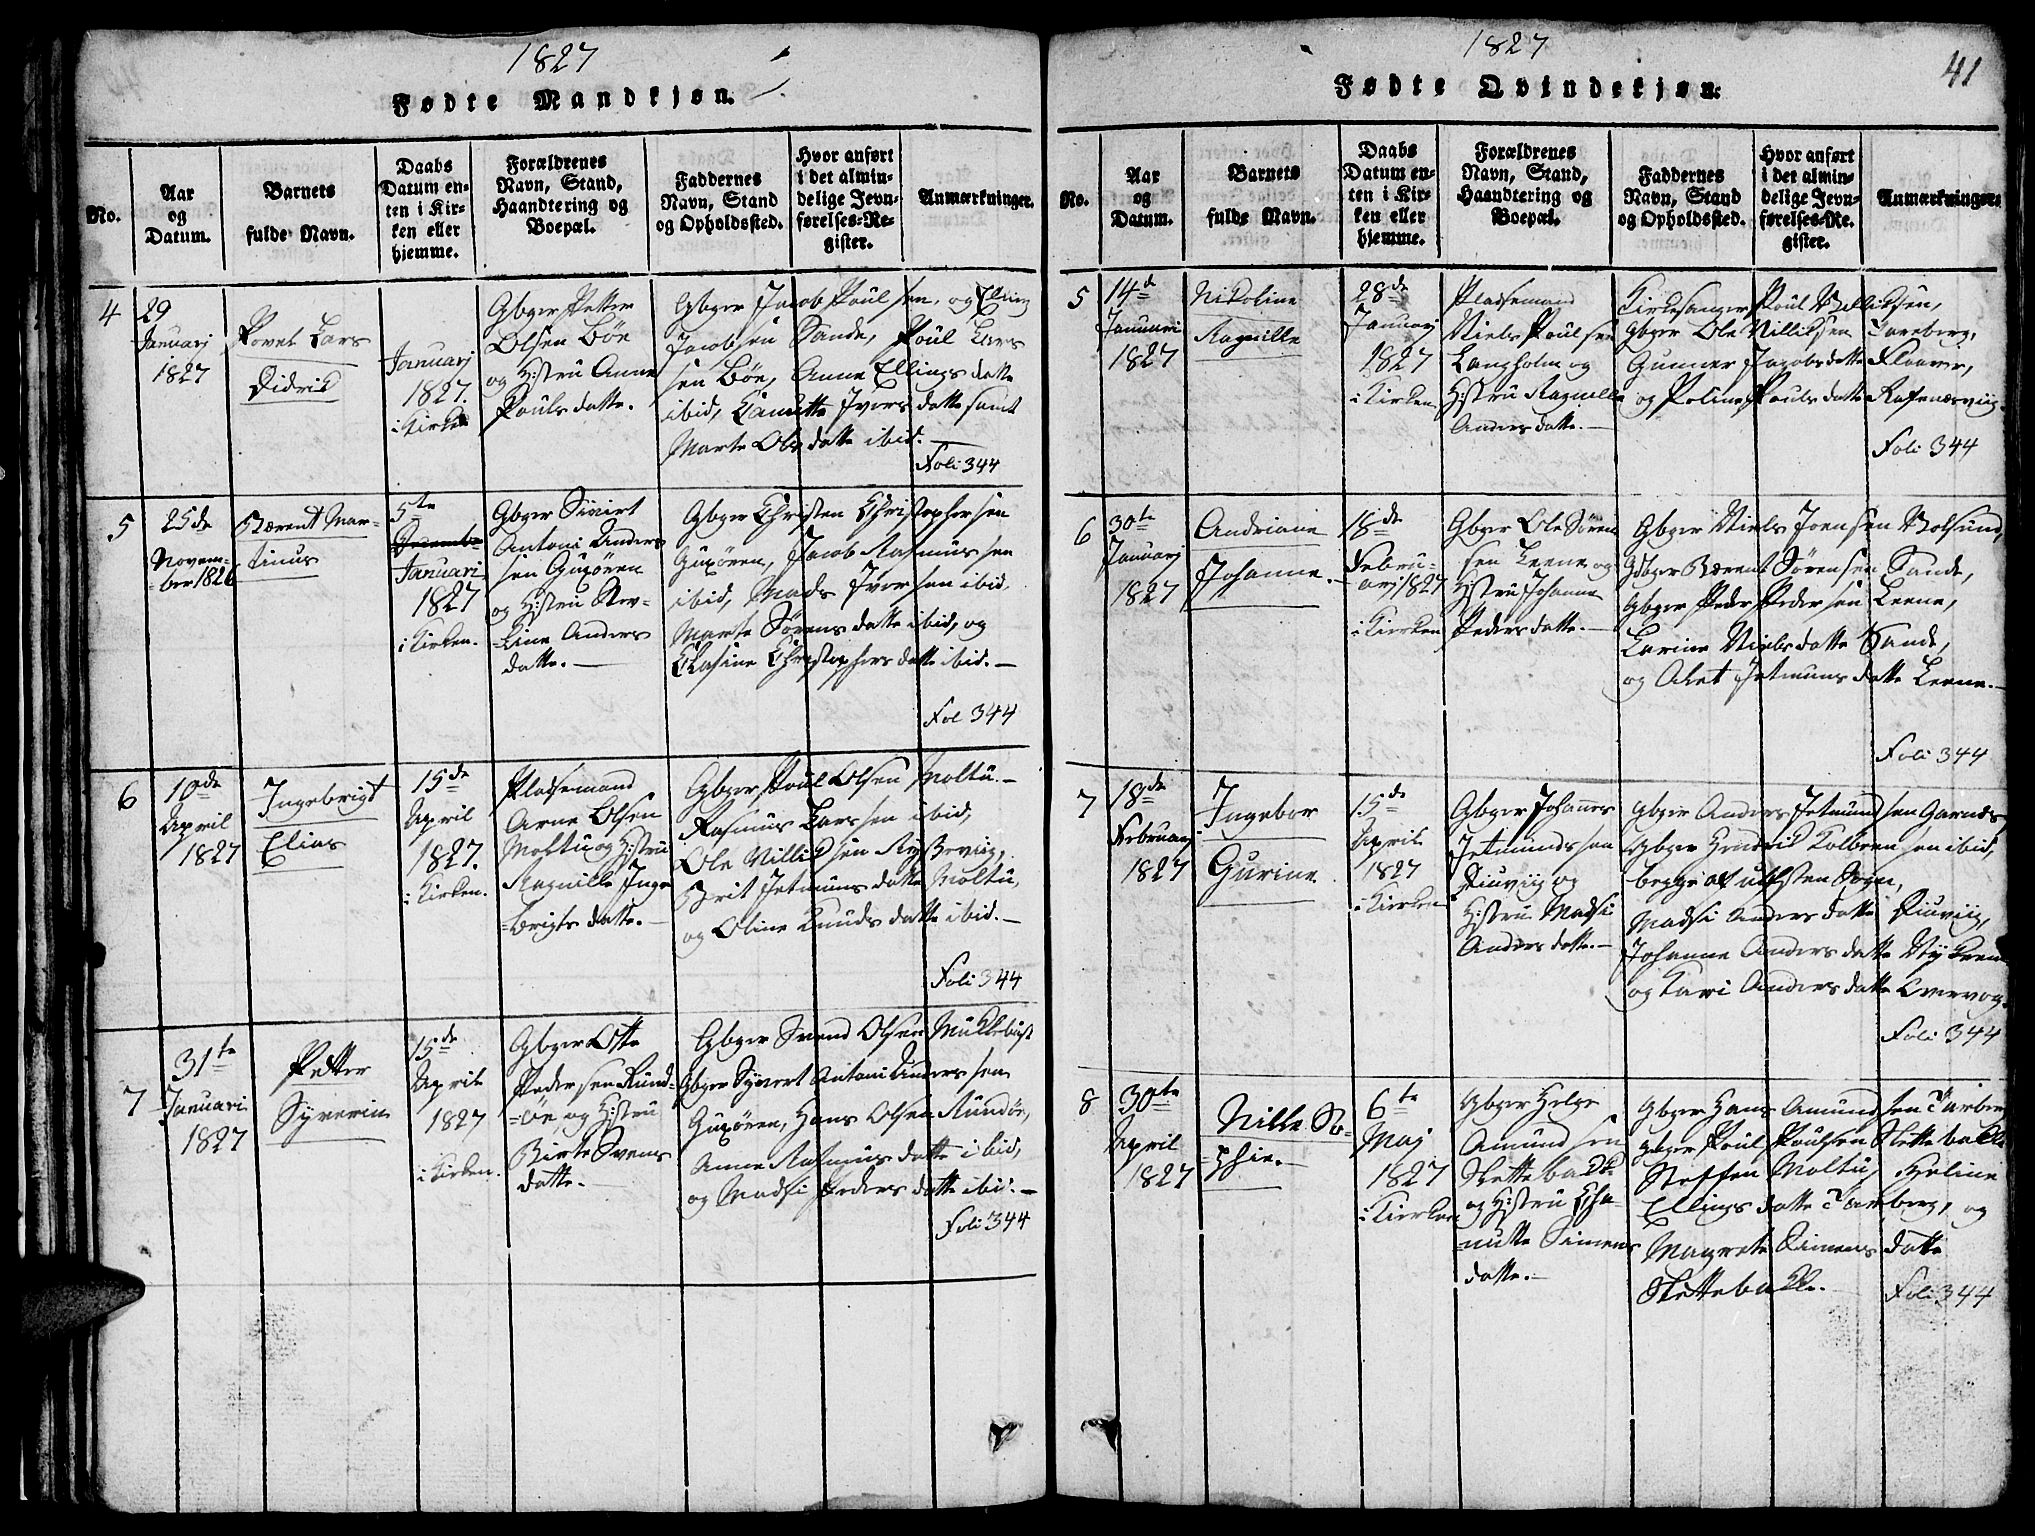 1827
Fødte Mandkjøn.
No.
Aar
og
Datum.
Barnets
fulde Navn.
Daabs
Datum en-
ten i Kir-
ken eller
hjemme.
Forældrenes
Navn, Stand,
Haandtering og
Boepæl.
Faddernes
Navn, Stand
og Opholdssted.
Hvor anført
i det almin-
delige Jevn-
førelses-Re-
gister.
Anmærkninger.
4
29
Januarj
1827
Povel Lars
Didrik
Januarj
1827.
i Kirken
Gbger Petter
Olsen Böe
og Hustru Anne
Pouls datte.
Gbger Jacob Poul sen, og Elling
Jacobsen Sande, Poul Lars
sen Böe, Anne Ellings datte
ibid, Ivors datte samt
Marte Ols datte ibid.
Foli 344
5
25de
Novem-
-ber 1826
Bærent Mar-
tinus
5te
Januari
1827
i Kirken.
Gbger Sivert
Antoni Anders
sen Guxören
og Hustru
Anders
datte.
Gbger Christen Christophersen
Guxören, Jacob Rasmus sen
ibid, Mads Iver sen ibid,
Marte Sörens datte ibid, og
Christophers datte ibid.
Fol 344
6
10de
April
1827
Ingebrigt
Elias
15de
April
1827.
i Kirken.
Pladsemand
Arne Olsen
Moltu og Hustru
Ragnille Inge
-brigts datte.
Gbger Poul Olsen Moltu.
Rasmus Lars sen ibid,
Ole Villik sen
Brit Jetmuns datte Moltu,
og Oline Knuds datte ibid.
Foli 344
7
31te
Januari
1827
Petter
Syverin
15de
April
1827
i Kirken.
Gbger Otte
Peder sen Rund-
-öe og Hustru
Birte Svens
datte.
Gbger Svend Olsen Mükkebust
Gbger Syvert Antoni Anders sen
Guxören, Hans Olsen Rundöe,
Anne Rasmus datte ibid,
og Madsi Peders datte ibid.
Foli 344
1827
41
Fødte Qvindekjøn.
No.
Aar
og
Datum.
Barnets
fulde Navn.
Daabs
Datum en-
ten i Kir-
ken eller
hjemme.
Forældrenes
Navn, Stand,
Haandtering og
Boepæl.
Faddernes
Navn, Stand
og Opholdssted.
Hvor anført
i det almin-
delige Jevn-
førelses-Re-
gister.
Anmærkninger.
5
14de
Januari
1827
Nikoline
Ragnille
28de
Januarj
1827
i Kirken
Pladsemand
Niels Poul sen
Langholm og
Hustru Ragnille
Anders datte.
Kirkesanger Poul Villiksen,
Gbger Ole Villiksen Tarberg,
Gunner Jacobs datte
og Poline Pouls datte
Foli 344
6
30te
Januarj
1827
Andriane
Johanne.
18de
Febru-
arj 1827
i Kirken
Gbger Ole Sören
sen Leene og
Hustru Johanne
Peders datte.
Gbger Niels Joensen
Gbger Bærent Sörensen Sande,
Gbger Peder Peder sen Leene,
Larine Niels datte Sande,
og Jetmuns datte Leene.
Foli 344
7
18de
Februarj
1827
Ingebor
Gurine
15de
April
1827
i Kirken
Gbger Johannes
Jetmunds sen
og
Hustru Madsi
Anders datte.
Gbger Anders Jetmund sen
Gbger Hendrik Kolbeen sen ibid,
begge af Sogn,
Madsi Anders datte
Johanne Anders datte
og Kari Anders datte
Foli 344
8
30te
April
1827
Nille So-
-phie.
6te
Maj
1827
i Kirken
Gbger Helge
Amund sen
Slettebakk
og Hustru
Simens
datte.
Gbger Hans Amund sen Tarberg
Gbger Poul Poulsen Slettebakk
Steffen Moltu, Heline
Ellings datte Tarberg, og
Magrete Simens datte
Slettebakke.
Foli 344